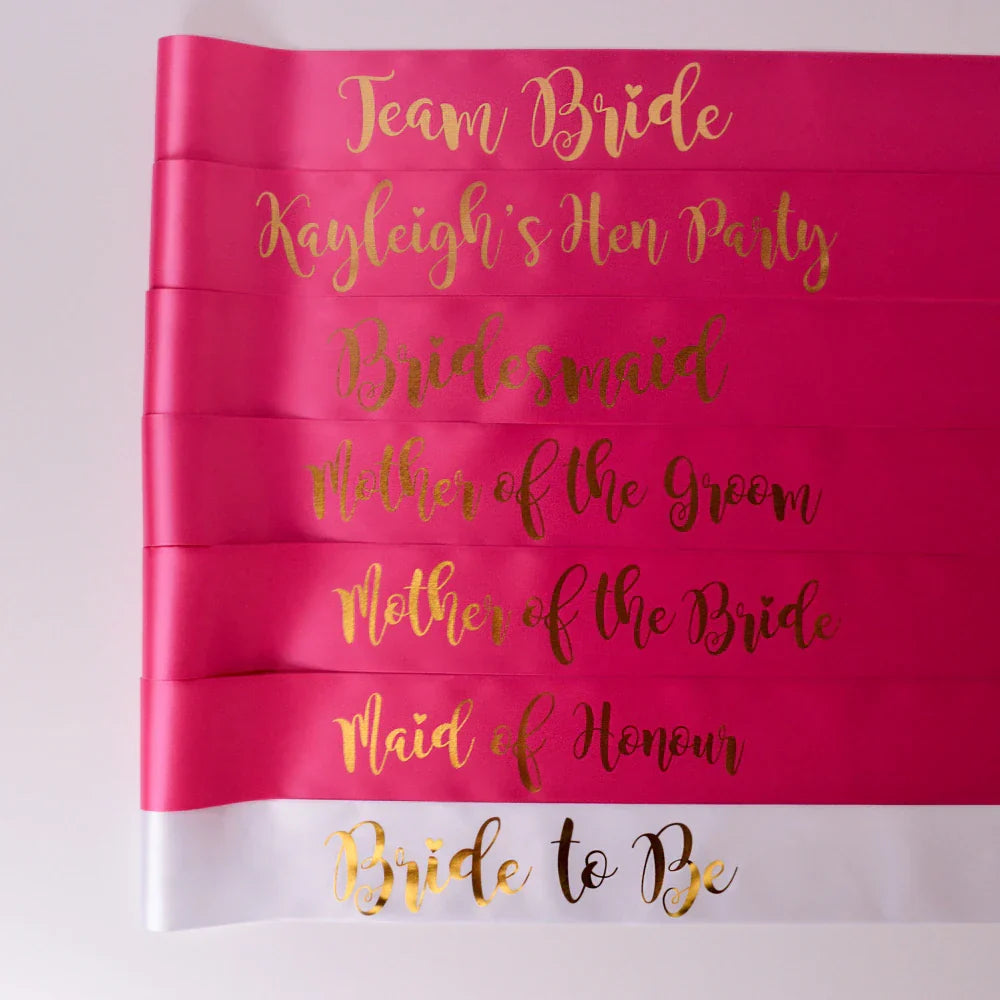 Team Bride
Kayleigh's Hen Party
Bridesmaid
Mother of the Groom
Mother of the Bride
Maid of Honour
Bride to Be